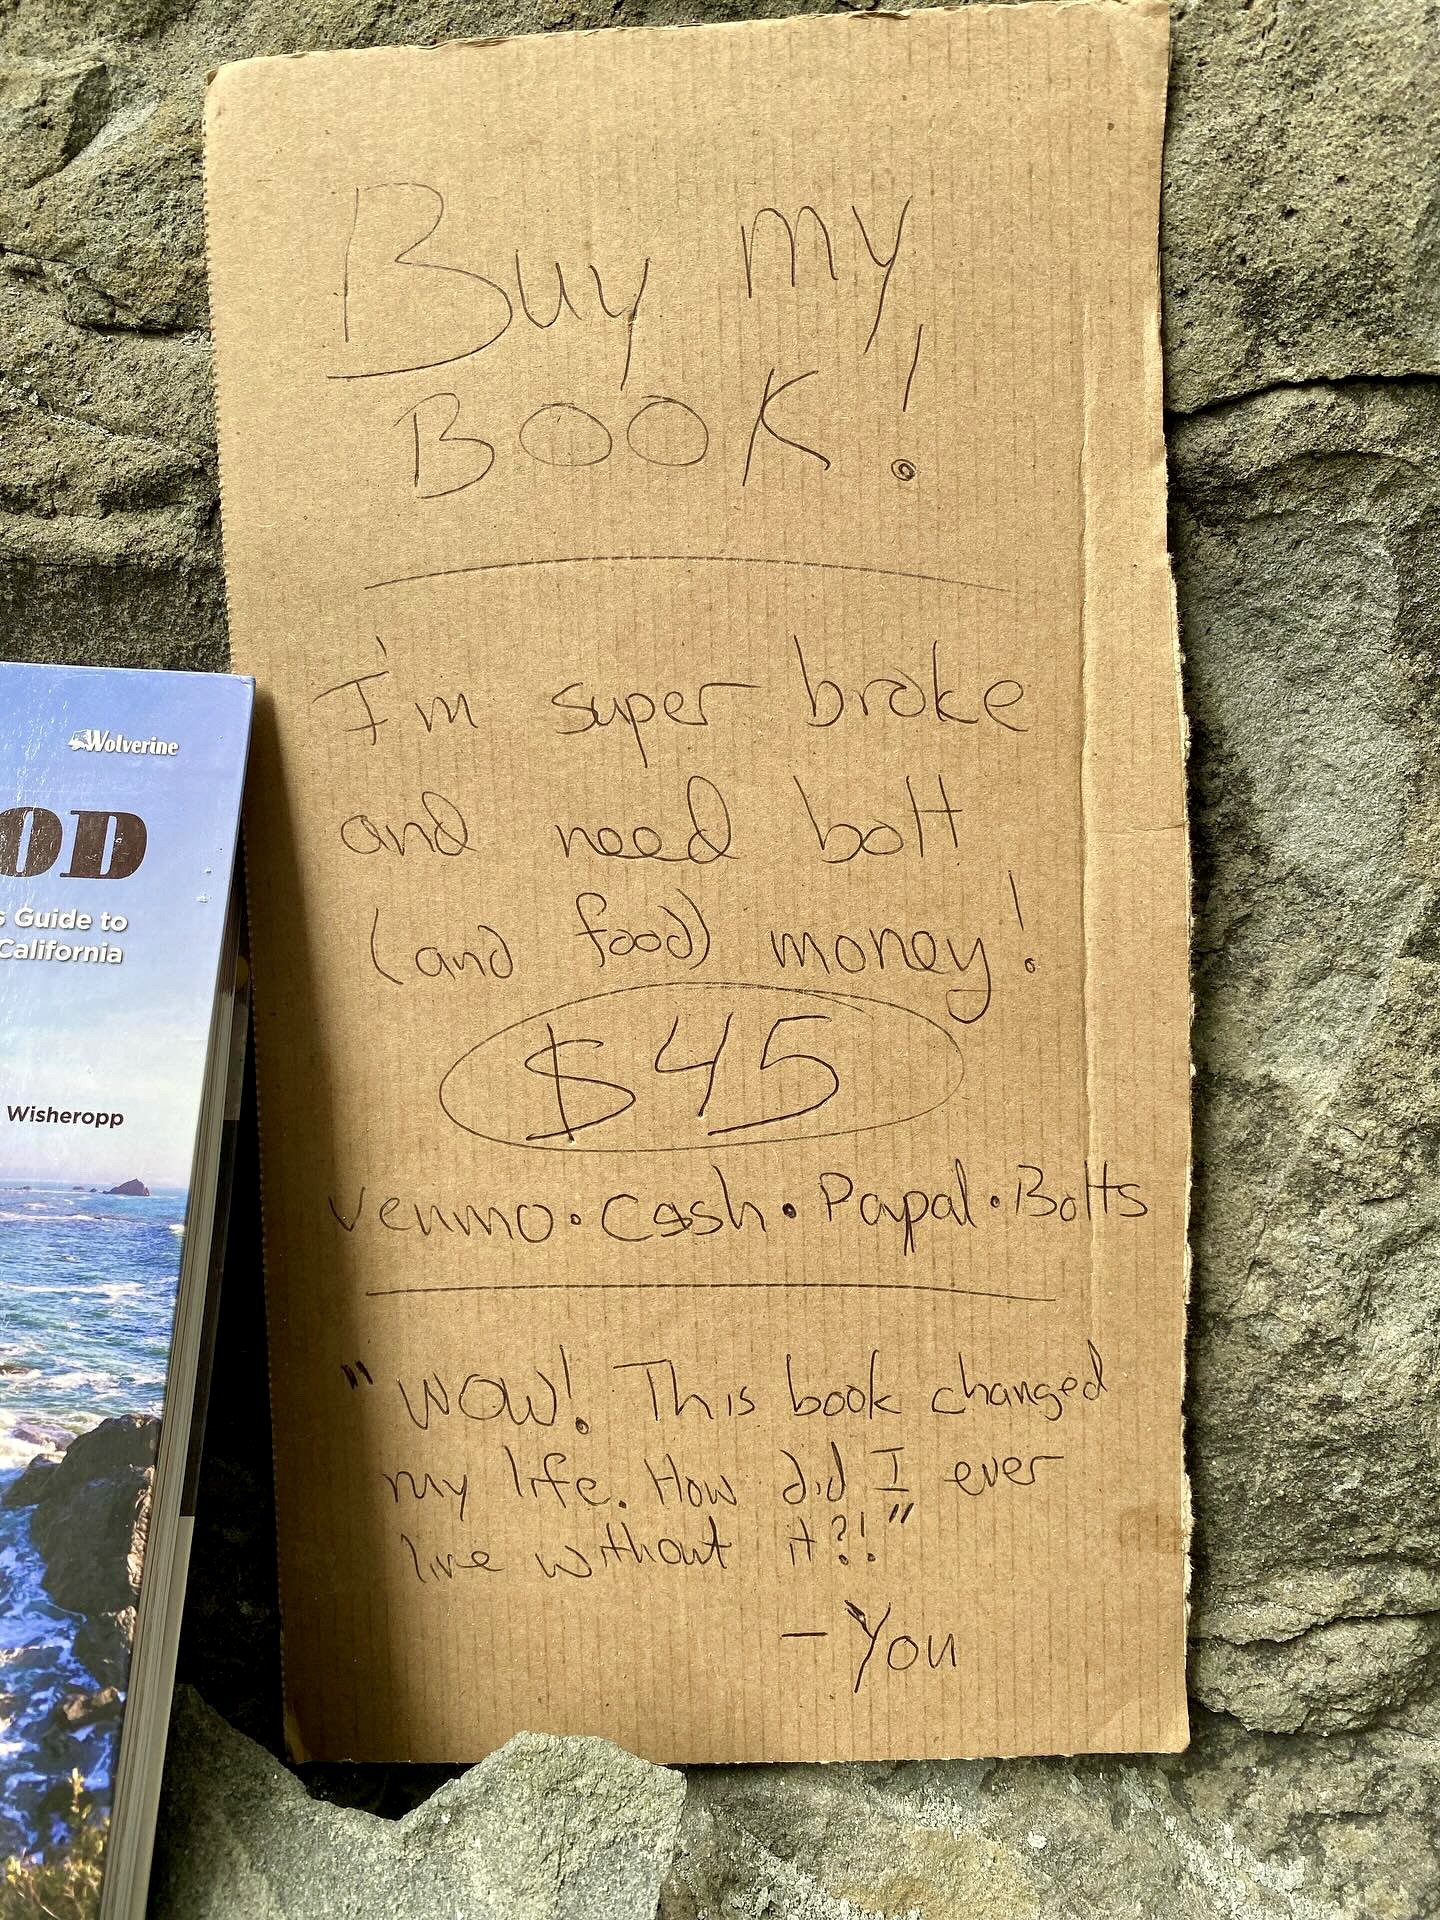 Buy my
BOOK!
I'm super broke
and need bolt
(and food) money!
$45
Venmo · Cash · Papal · Bolts
"WOW! This book changed
my life. How did I ever
live without it?!"
- You
Wolverine
OD
s Guide to
California
Wisheropp